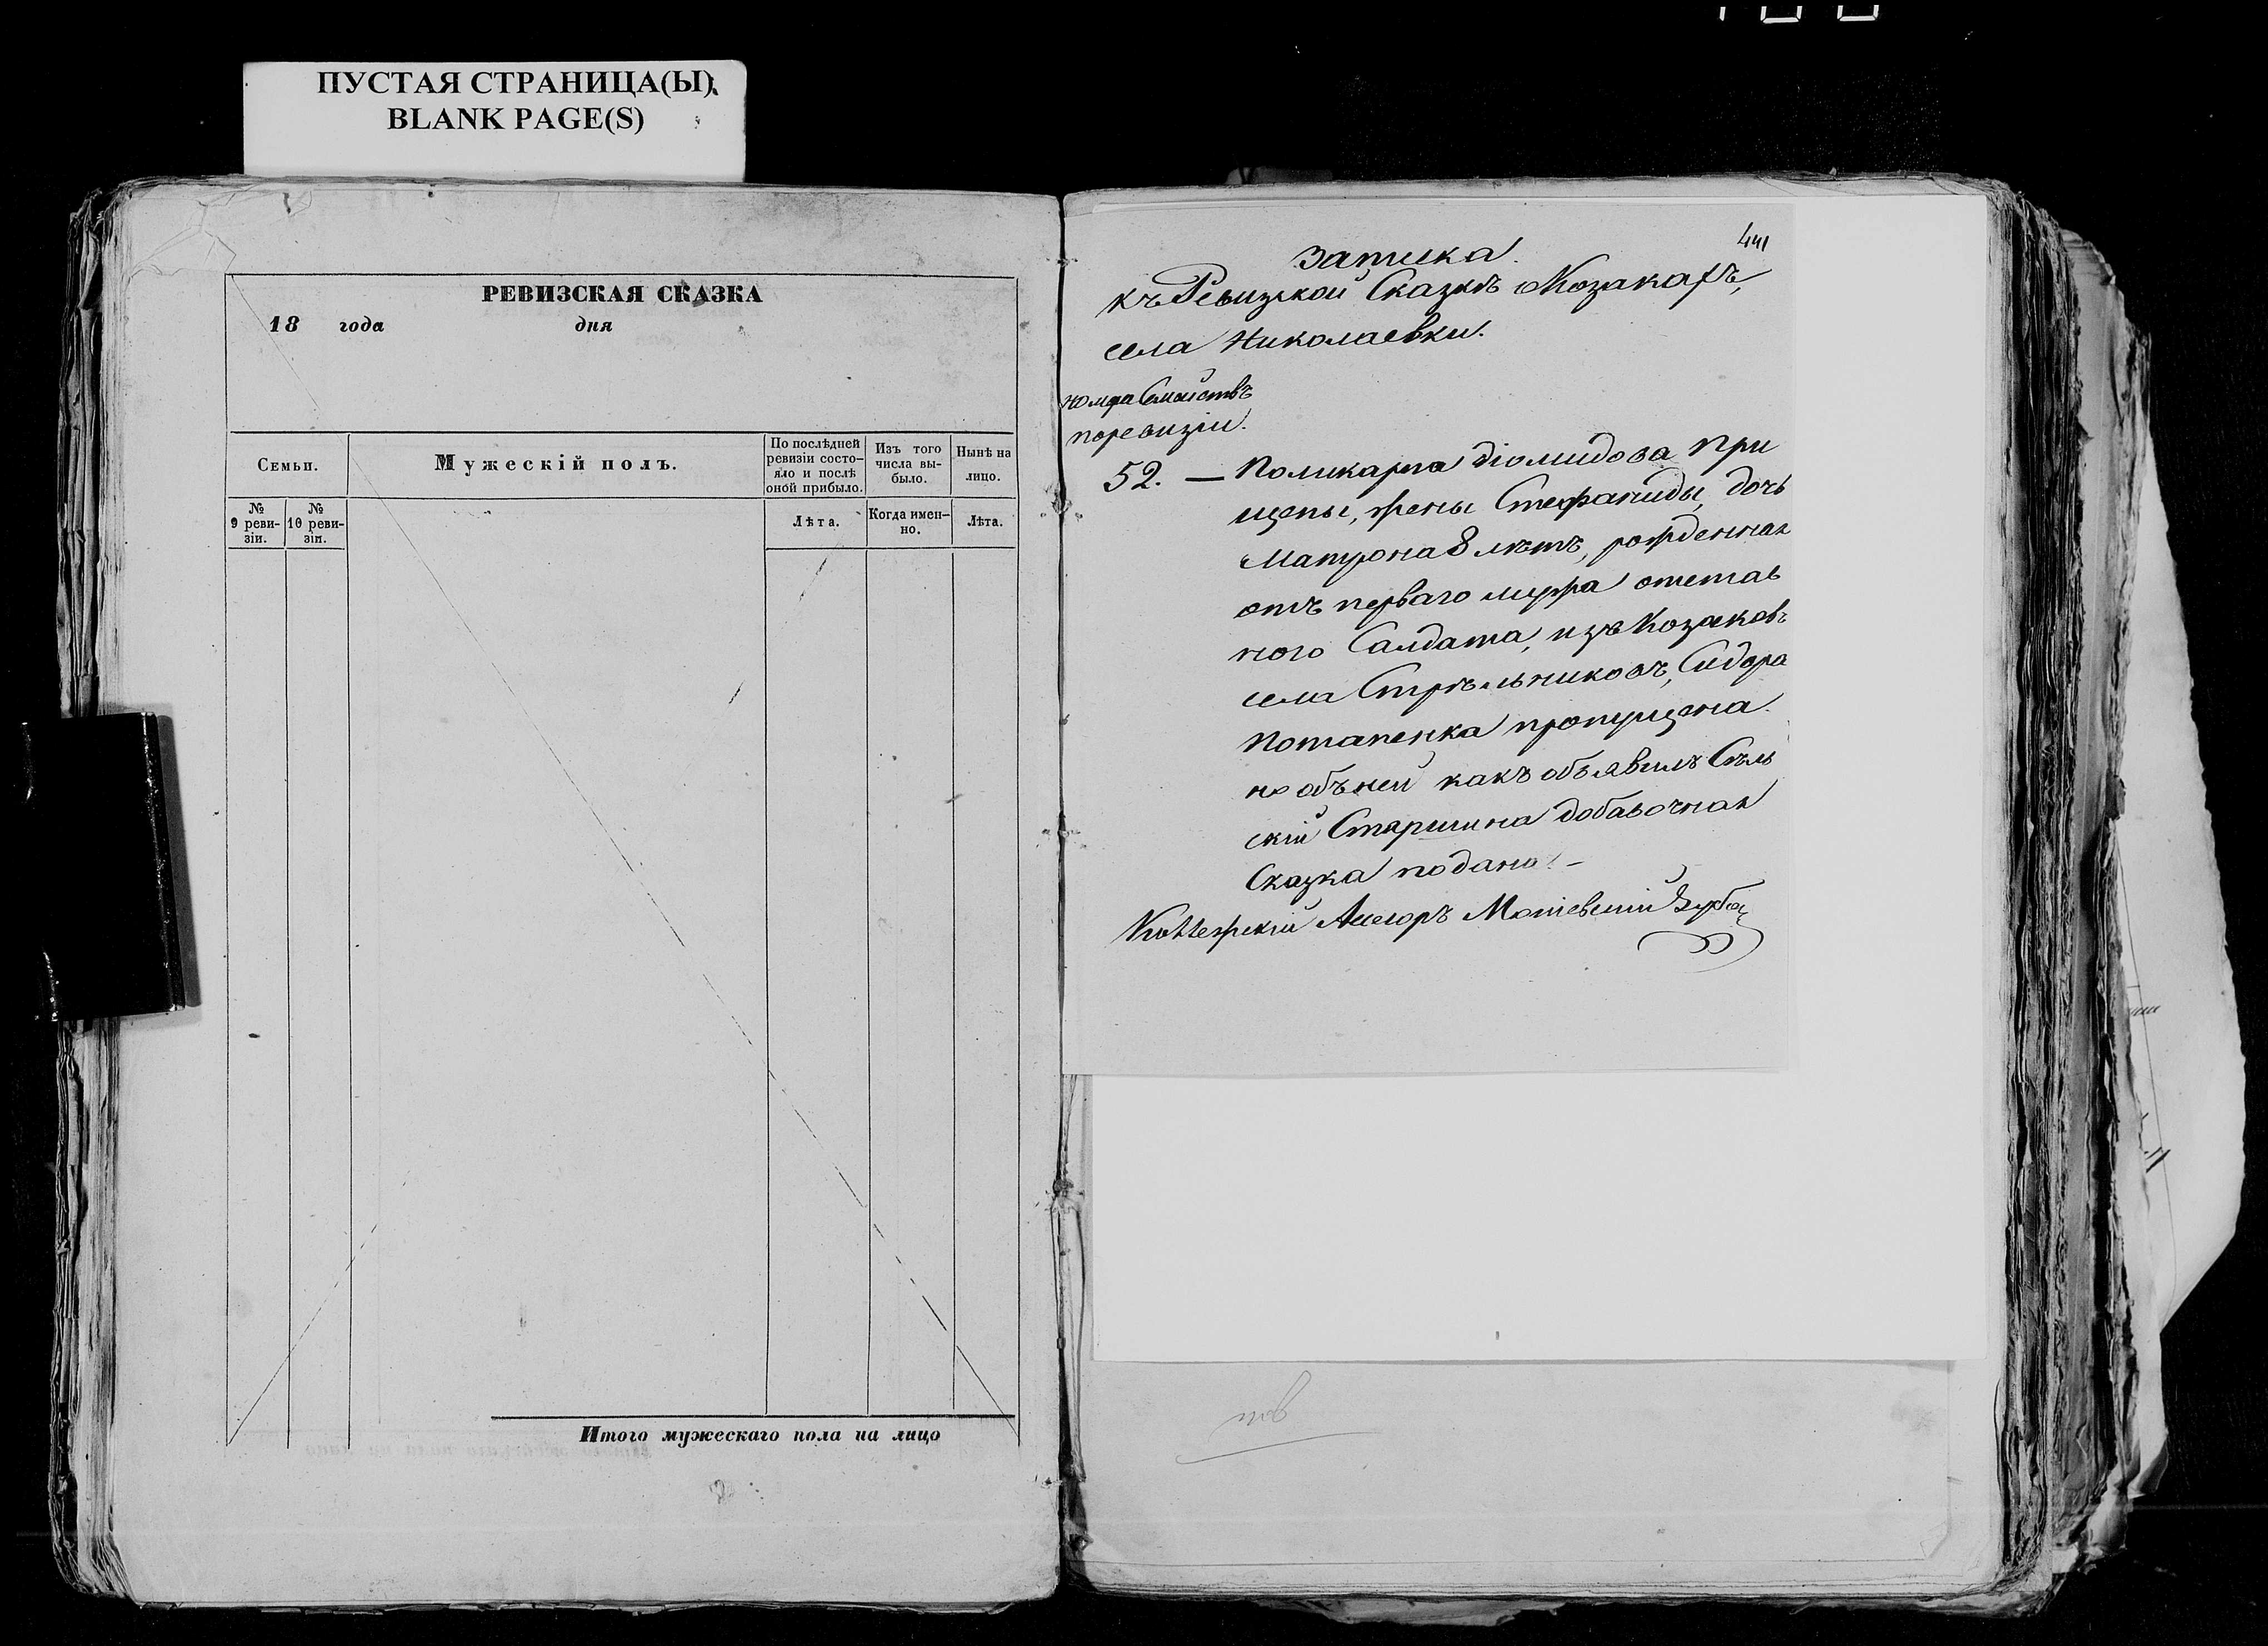 ПУСТАЯ СТРАНИЦА(Ы)
BLANK PAGE(S)
РЕВИЗСКАЯ СКАЗКА
18 года дня
Семьи.
Мужескій полъ.
По послѣдней ревизіи состояло и послѣ оной прибыло.
Изъ того числа выбыло.
Нынѣ на лицо.
№ 9 ревизіи.
№ 10 ревизіи.
Лѣта.
Когда именно.
Лѣта.
Итого мужескаго пола на лицо
441
Записка
къ Ревизской Сказкѣ о Козакахъ,
села Николаевки.
номра Семействъ
по ревизіи.
52. — Поликарпа Діомидова При
щепы, жены Стефаниды, дочь
Матрона 8 лѣтъ, рожденная
отъ перваго мужа отстав
ного Салдата, изъ Козаковъ
села Стрѣльниковъ, Сидора
Потапенка пропущена.
но объ ней какъ объявилъ Сѣль
скій Старшина добавочная
Сказка подана. —
Коллежскій Асесоръ